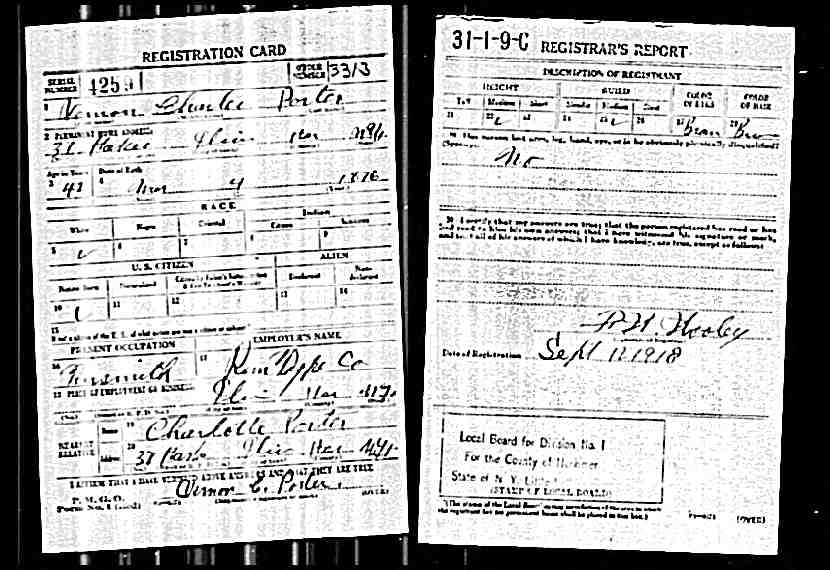 REGISTRATION CARD
SERIAL NUMBER 4259
ORDER NUMBER 3313
1 Vernon Charles Porter
2 PERMANENT HOME ADDRESS
Ilion Her N.Y.
Age in Years Date of Birth
3 42 4 Mar 4 1876
RACE
White Negro Oriental Indian
Citizen
5 6 7 8 9
U.S. CITIZEN ALIEN
Native Born Naturalized Declared Non-declarant
10 11 12 13 14
15
PRESENT OCCUPATION EMPLOYER'S NAME
16 17 Rem Type Co
18 PLACE OF EMPLOYMENT OR BUSINESS
Ilion Her N.Y.
NEAREST RELATIVE
Name 19 Charlotte Porter
Address 20 Ilion Her N.Y.
I AFFIRM THAT I HAVE VERIFIED ABOVE ANSWERS AND THAT THEY ARE TRUE
P. M. G. O.
Form No. 1 (Red)
Vernon C. Porter
(OVER)
31-1-9-C REGISTRAR'S REPORT
DESCRIPTION OF REGISTRANT
HEIGHT BUILD COLOR OF EYES COLOR OF HAIR
Tall Medium Short Slender Medium Stout
21 22 23 24 25 26 27 Brown 28 Bro
29 Has person lost arm, leg, hand, eye, or is he obviously physically disqualified?
(Specify.) No
30 I certify that my answers are true; that the person registered has read or has
had read to him his own answers; that I have witnessed his signature or mark,
and that all of his answers of which I have knowledge are true, except as follows:
Date of Registration Sept 12 1918
Local Board for Division No. 1
For the County of Herkimer
State of N. Y.
(STAMP OF LOCAL BOARD)
(The stamp of the Local Board having jurisdiction of the area in which
the registrant has his permanent home shall be placed in this box.)
(OVER)